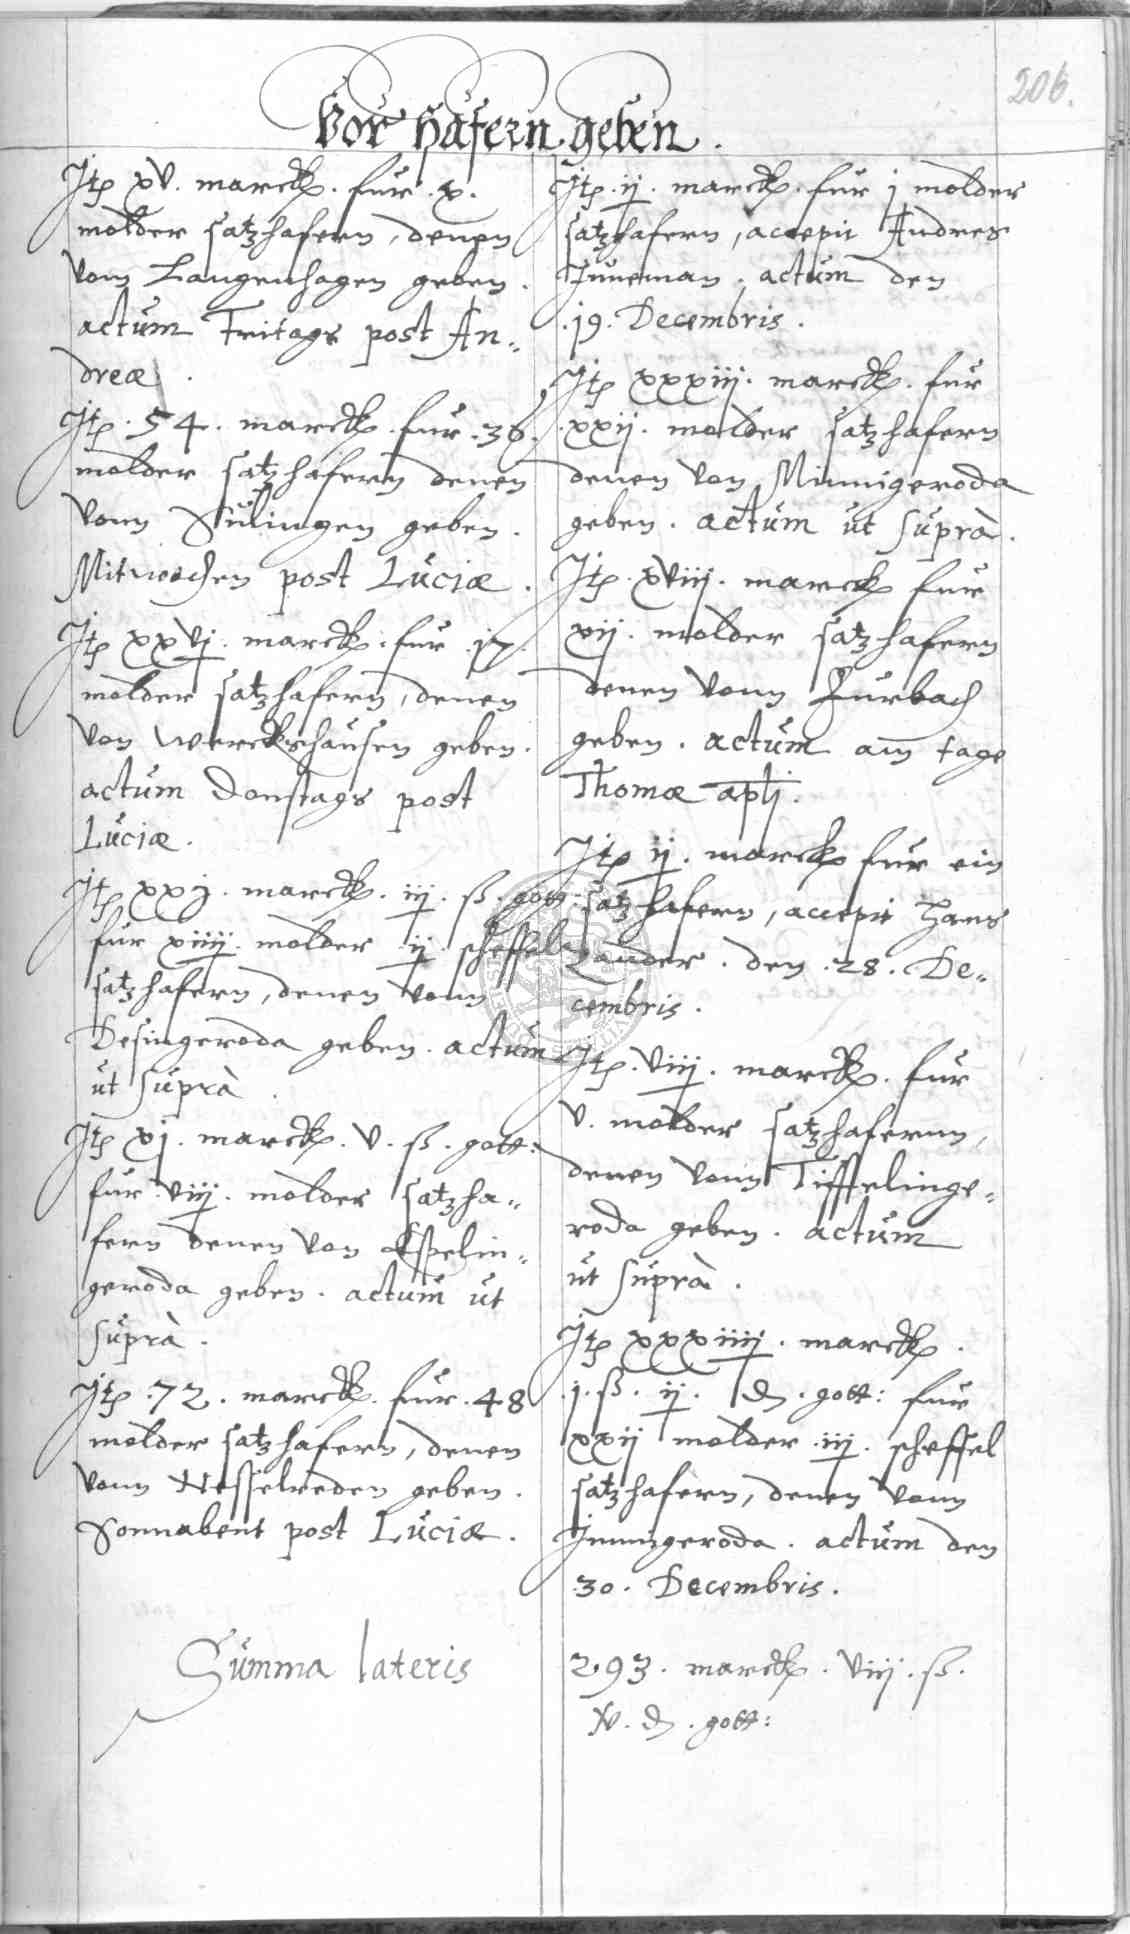 206.
Vor hafern geben.
Jtp xv. marck. fur .x.
molder satzhafern, denen
vom Langenhagen geben.
actum Fritags post An-
dreæ.
Jtp .54. marck. fur .36.
molder satzhafern denen
vonn Sulingen geben.
Mitwochen post Luciæ.
Jtp xxvj. marck. fur .17.
molder satzhafern, denen
von Werckshausen geben.
actum Donstags post
Luciæ.
Jtp xxj. marck. iij. ß. gott:
fur xiiij. molder ij scheffel
satzhafern, denen vonn
Desingeroda geben. actum
ut suprà.
Jtp xj. marck. v. ß. gott:
fur viij. molder satzha-
fern denen von Esselin-
geroda geben. actum ut
suprà.
Jtp .72. marck. fur .48
molder satzhafern, denen
vonn Nesselreden geben.
Sonnabent post Luciæ.
Jtp .ij. marck. fur j molder
satzhafern, accepit Andres
Juneman. actum den
.19. Decembris.
Jtp xxxiij. marck. fur
.xxij. molder satzhafern
denen von Minnigeroda
geben. actum ut suprà.
Jtp. xviij. marck fur
xij. molder satzhafern
denen vonn Furbach
geben. actum am tage
Thomæ aptj.
Jtp ij. marck fur ein
satzhafern, accepit Hans
Zander. den .28. De-
cembris.
Jtp. viij. marck. fur
v. molder satzhafernn,
denen vonn Tifftelinge-
roda geben. actum
ut suprà.
Jtp xxxiiij. marck.
.j. ß. ij. d. gott: fur
xxij molder .iij. scheffel
satzhafern, denen vonn
Immigeroda. actum den
.30. Decembris.
Summa lateris
293. marck. viij. ß.
iv. d. gott: